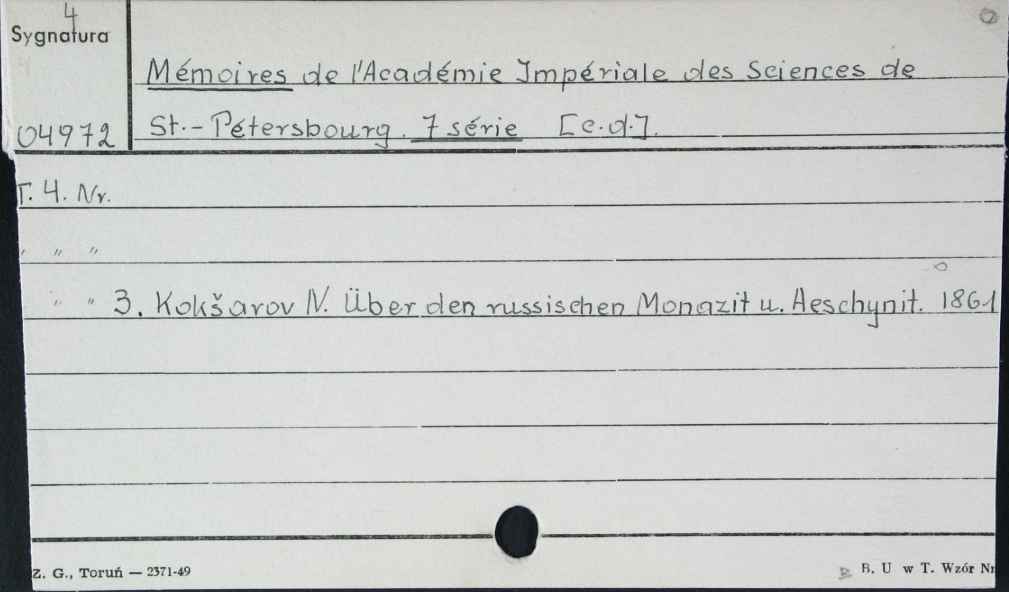 4
Sygnatura
Mémoires de l'Académie Impériale des Sciences de
04972 St.-Pétersbourg. 7 série [c.d.].
T. 4. Nr.
" " "
" " 3. Kokšarov N. Über den russischen Monazit u. Aeschynit. 1861
Z. G., Toruń — 2371-49
B. U w T. Wzór Nr